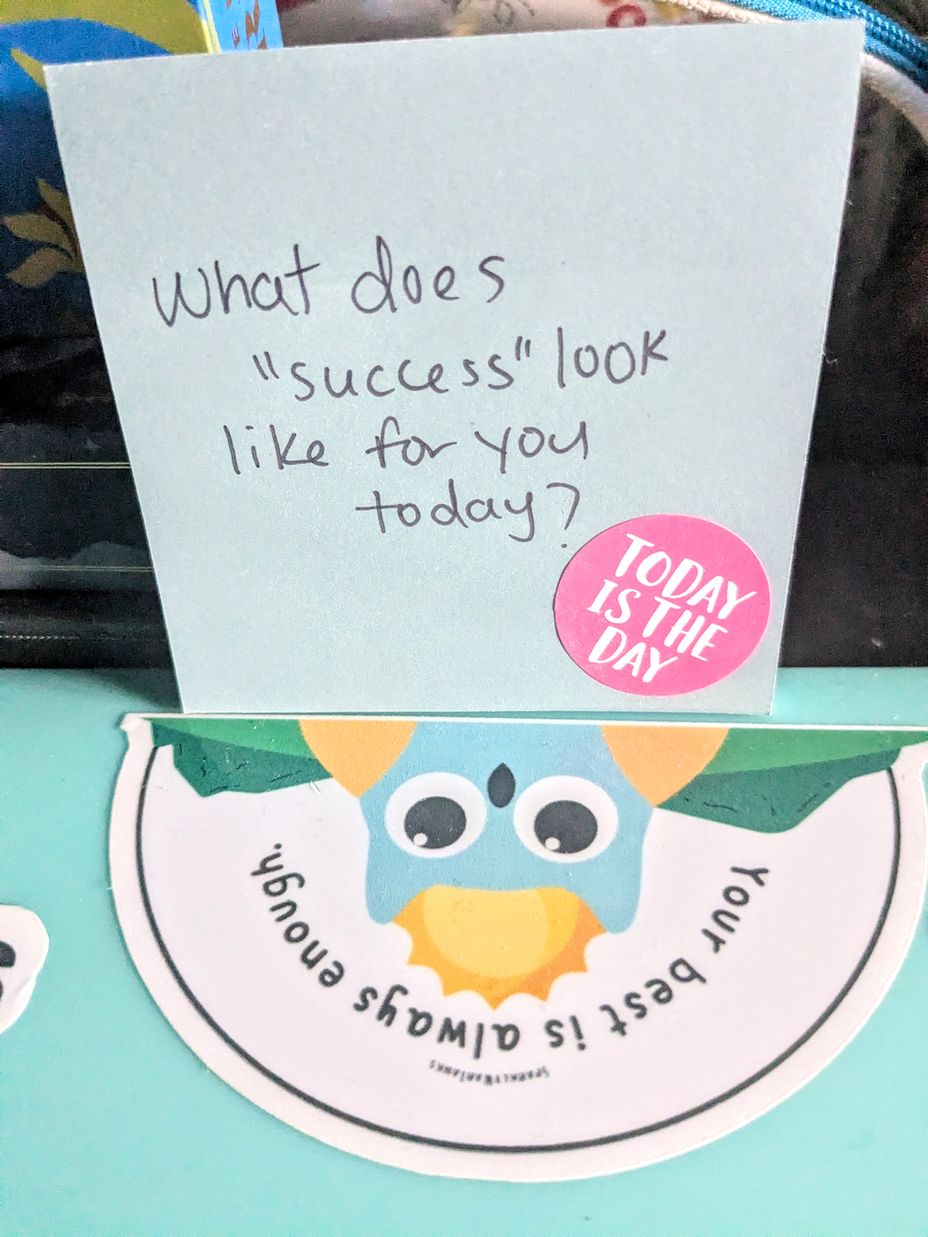 What does
"success" look
like for you
today?
TODAY
IS THE
DAY
Your best is always enough.
SPARKLYWARTANKS